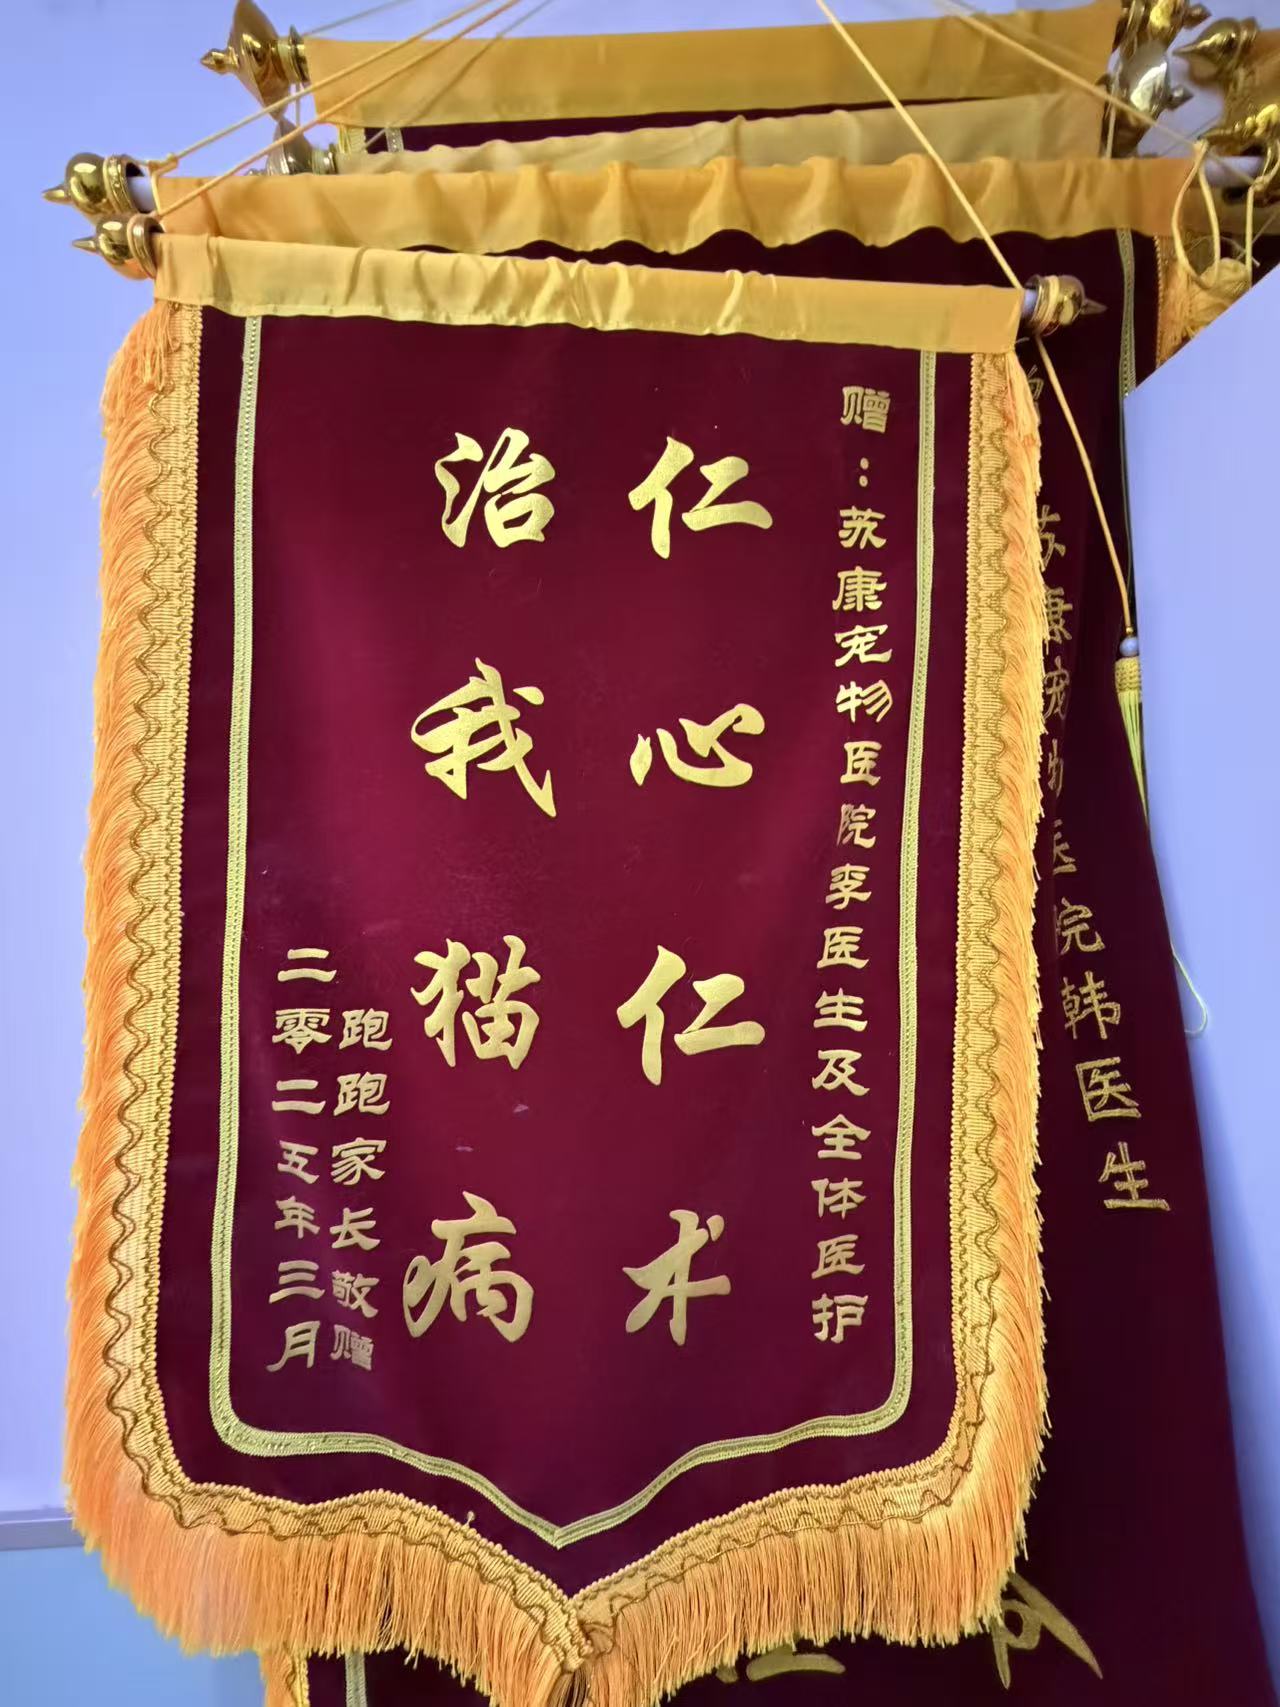 赠：苏康宠物医院李医生及全体医护
仁心仁术
治我猫病
跑跑家长敬赠
二零二五年三月
苏康宠物医院韩医生